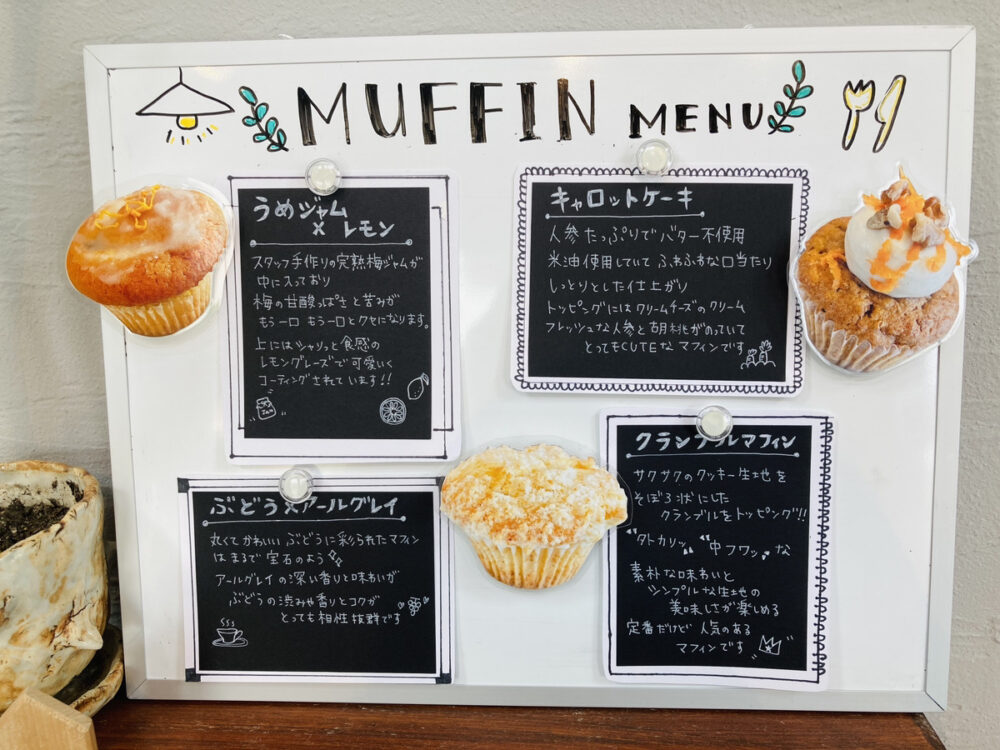 MUFFIN MENU
うめジャム
× レモン
スタッフ手作りの完熟梅ジャムが
中に入っており
梅の甘酸っぱさと苦みが
もう一口 もう一口とクセになります。
上にはシャリッと食感の
レモングレーズで可愛いく
コーティングされています!!
キャロットケーキ
人参たっぷりでバター不使用
米油使用していて ふわふわな口当たり
しっとりとした仕上がり
トッピングにはクリームチーズのクリーム
フレッシュな人参と胡桃がのっていて
とってもCUTEなマフィンです
ぶどう×アールグレイ
丸くてかわいい ぶどうに彩られたマフィン
はまるで宝石のよう
アールグレイの深い香りと味わいが
ぶどうの渋みや香りとコクが
とっても相性抜群です
クランブルマフィン
サクサクのクッキー生地を
そぼろ状にした
クランブルをトッピング!!
"外カリッ" "中フワッ"な
素朴な味わいと
シンプルな生地の
美味しさが楽しめる
定番だけど 人気のある
マフィンです